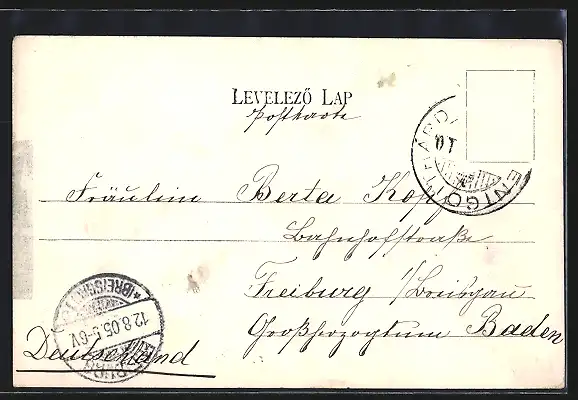 LEVELEZŐ LAP
Postkarte
Fräulein Berta Kopf
Bahnhofstraße
Freiburg i/Breisgau
Großherzogtum Baden
Deutschland
12.8.05.5-6V
(BREISGAU)
ENTGOTTHÁRD